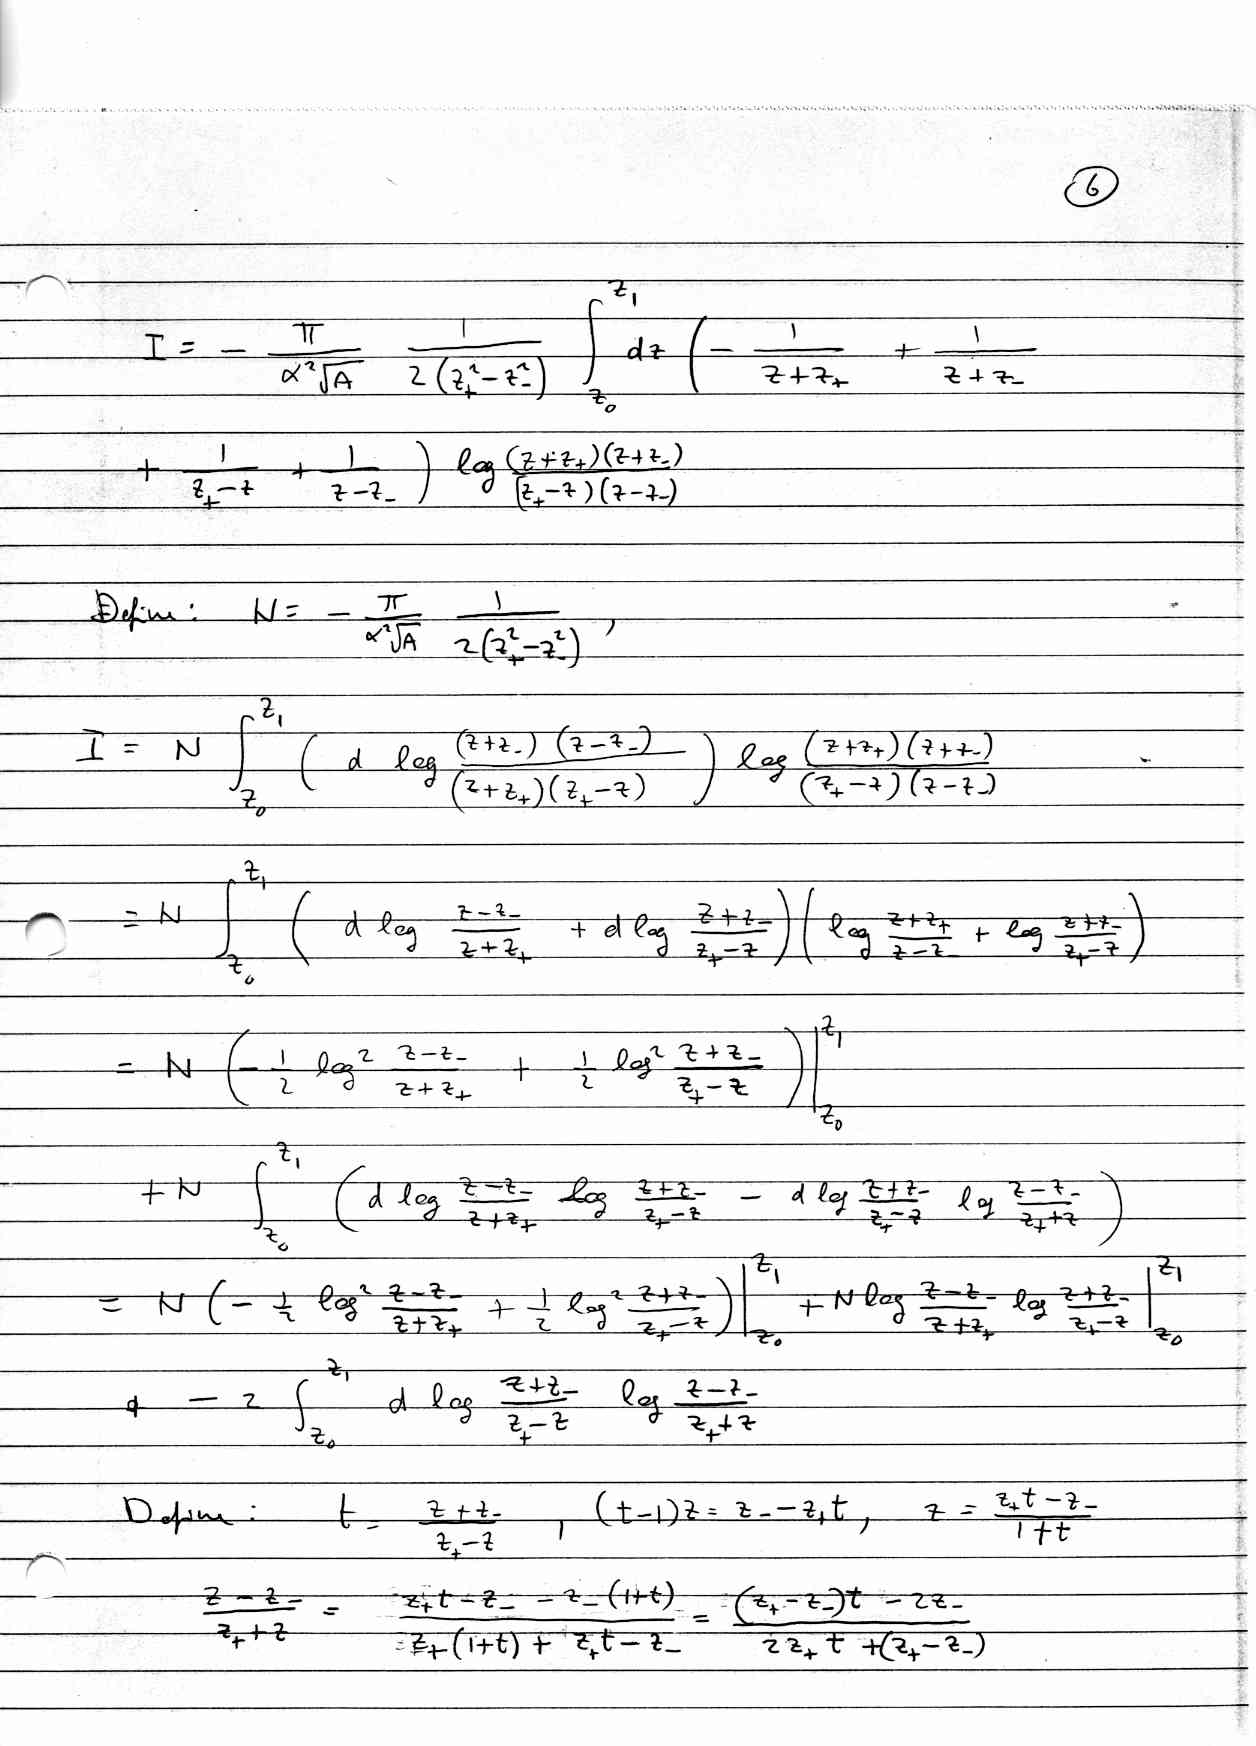 6
I = - \frac{\pi}{\alpha^2 \sqrt{A}} \frac{1}{2(z_+^2 - z_-^2)} \int_{z_0}^{z_1} dz ( - \frac{1}{z+z_+} + \frac{1}{z+z_-}
+ \frac{1}{z_+-z} + \frac{1}{z-z_-} ) log \frac{(z+z_+)(z+z_-)}{(z_+-z)(z-z_-)}
Define: N = - \frac{\pi}{\alpha^2 \sqrt{A}} \frac{1}{2(z_+^2 - z_-^2)} ,
I = N \int_{z_0}^{z_1} ( d log \frac{(z+z_-)(z-z_-)}{(z+z_+)(z_+-z)} ) log \frac{(z+z_+)(z+z_-)}{(z_+-z)(z-z_-)}
= N \int_{z_0}^{z_1} ( d log \frac{z-z_-}{z+z_+} + d log \frac{z+z_-}{z_+-z} ) ( log \frac{z+z_+}{z-z_-} + log \frac{z+z_-}{z_+-z} )
= N ( - \frac{1}{2} log^2 \frac{z-z_-}{z+z_+} + \frac{1}{2} log^2 \frac{z+z_-}{z_+-z} ) |_{z_0}^{z_1}
+ N \int_{z_0}^{z_1} ( d log \frac{z-z_-}{z+z_+} log \frac{z+z_-}{z_+-z} - d log \frac{z+z_-}{z_+-z} log \frac{z-z_-}{z_++z} )
= N ( - \frac{1}{2} log^2 \frac{z-z_-}{z+z_+} + \frac{1}{2} log^2 \frac{z+z_-}{z_+-z} ) |_{z_0}^{z_1} + N log \frac{z-z_-}{z+z_+} log \frac{z+z_-}{z_+-z} |_{z_0}^{z_1}
- 2 \int_{z_0}^{z_1} d log \frac{z+z_-}{z_+-z} log \frac{z-z_-}{z_++z}
Define: t = \frac{z+z_-}{z_+-z} , (t-1)z = z_- - z_+t , z = \frac{z_+t - z_-}{1+t}
\frac{z-z_-}{z_++z} = \frac{z_+t - z_- - z_-(1+t)}{z_+(1+t) + z_+t - z_-} = \frac{(z_+-z_-)t - 2z_-}{2z_+t + (z_+-z_-)}